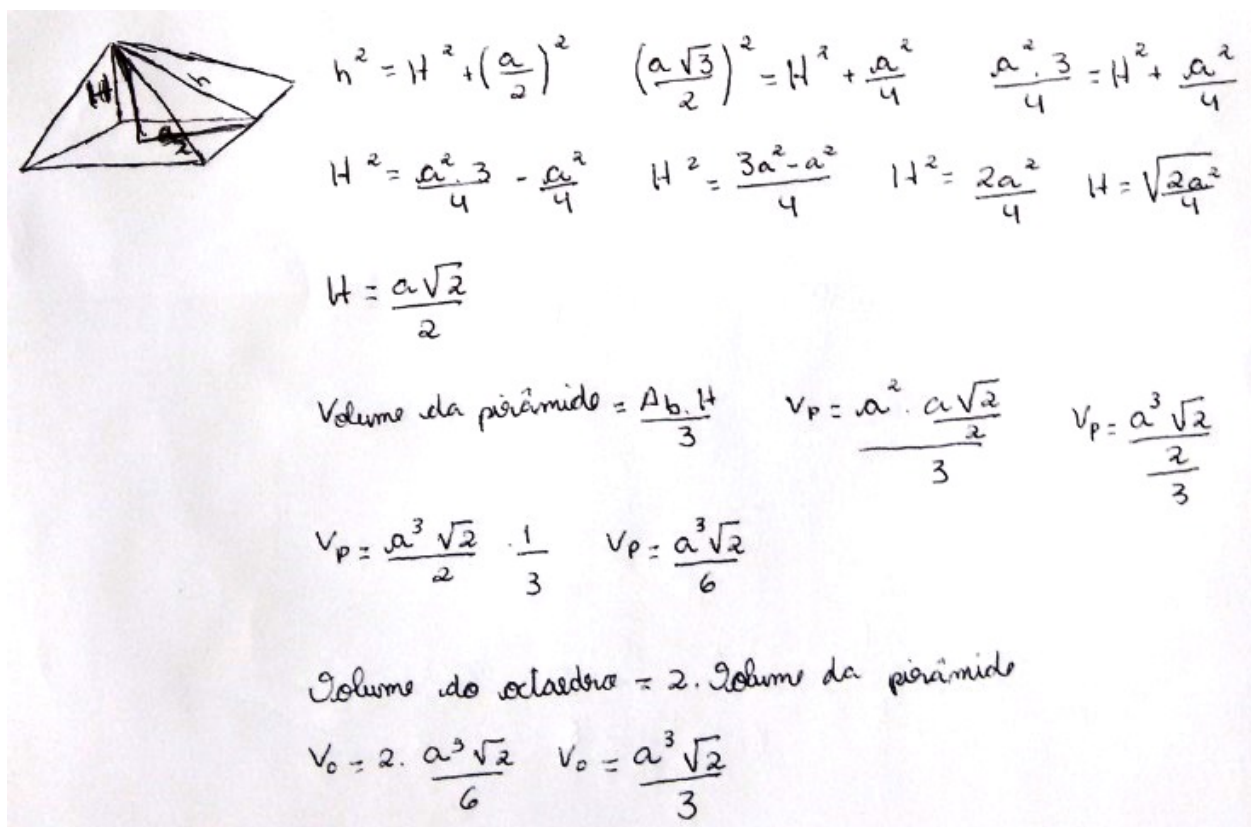 H h a/2
h² = H² + (a/2)² (a√3/2)² = H² + a²/4 a².3/4 = H² + a²/4
H² = a².3/4 - a²/4 H² = 3a²-a²/4 H² = 2a²/4 H = √2a²/4
H = a√2/2
Volume da pirâmide = Ab.H/3 Vp = a².a√2/2/3 Vp = a³√2/2/3
Vp = a³√2/2 . 1/3 Vp = a³√2/6
Volume do octaedro = 2. Volume da pirâmide
Vo = 2. a³√2/6 Vo = a³√2/3